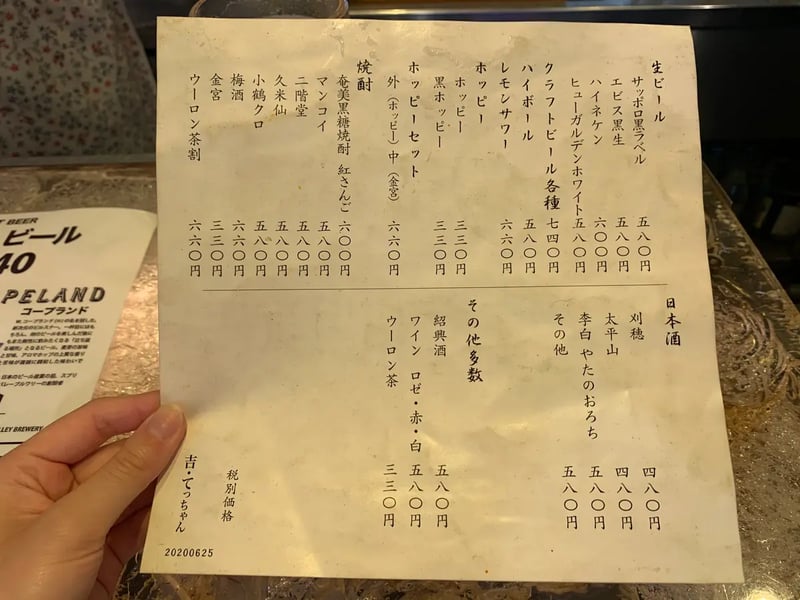 生ビール
サッポロ黒ラベル 五八〇円
エビス黒生 五八〇円
ハイネケン 六〇〇円
ヒューガルデンホワイト 五八〇円
クラフトビール各種 七四〇円
ハイボール 五八〇円
レモンサワー 六六〇円
ホッピー
ホッピー 三三〇円
黒ホッピー 三三〇円
ホッピーセット
外（ホッピー）中（金宮） 六六〇円
焼酎
奄美黒糖焼酎 紅さんご 六〇〇円
マンコイ 五八〇円
二階堂 五八〇円
久米仙 五八〇円
小鶴クロ 五八〇円
梅酒 六六〇円
金宮 三三〇円
ウーロン茶割 六六〇円
日本酒
刈穂 四八〇円
太平山 四八〇円
李白 やたのおろち 五八〇円
その他 五八〇円
その他多数
紹興酒 五八〇円
ワイン ロゼ・赤・白 五八〇円
ウーロン茶 三三〇円
税別価格
吉・てっちゃん
20200625
BEER
ビール
40
PELAND
コープランド
LLEY BREWERY